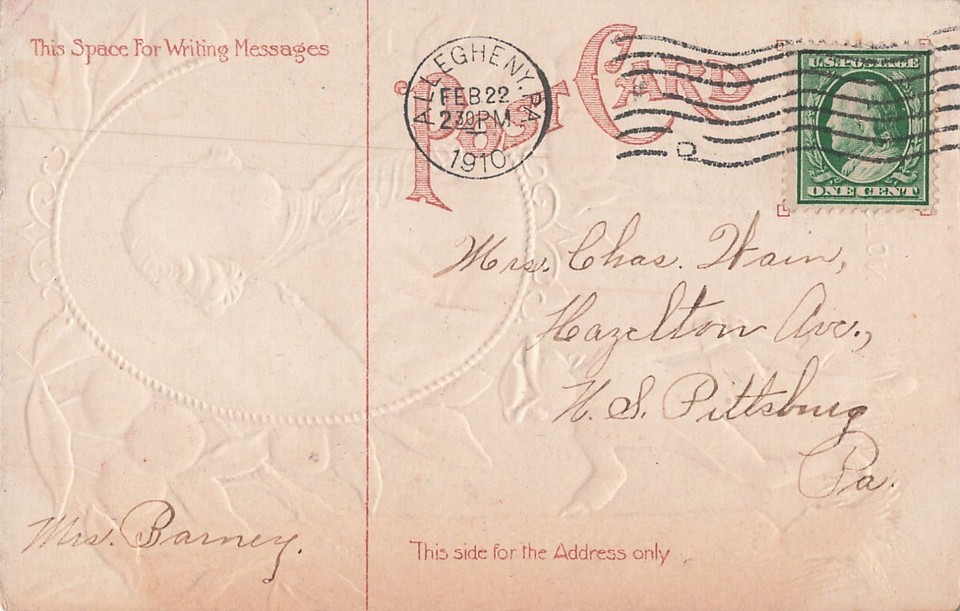 This Space For Writing Messages
Post Card
ALLEGHENY, PA
FEB 22
2 30 PM
1910
D
U.S. POSTAGE
ONE CENT
Mrs. Chas. Wain,
Hazelton Ave.,
N. S. Pittsburg
Pa.
Mrs. Barney.
This side for the Address only